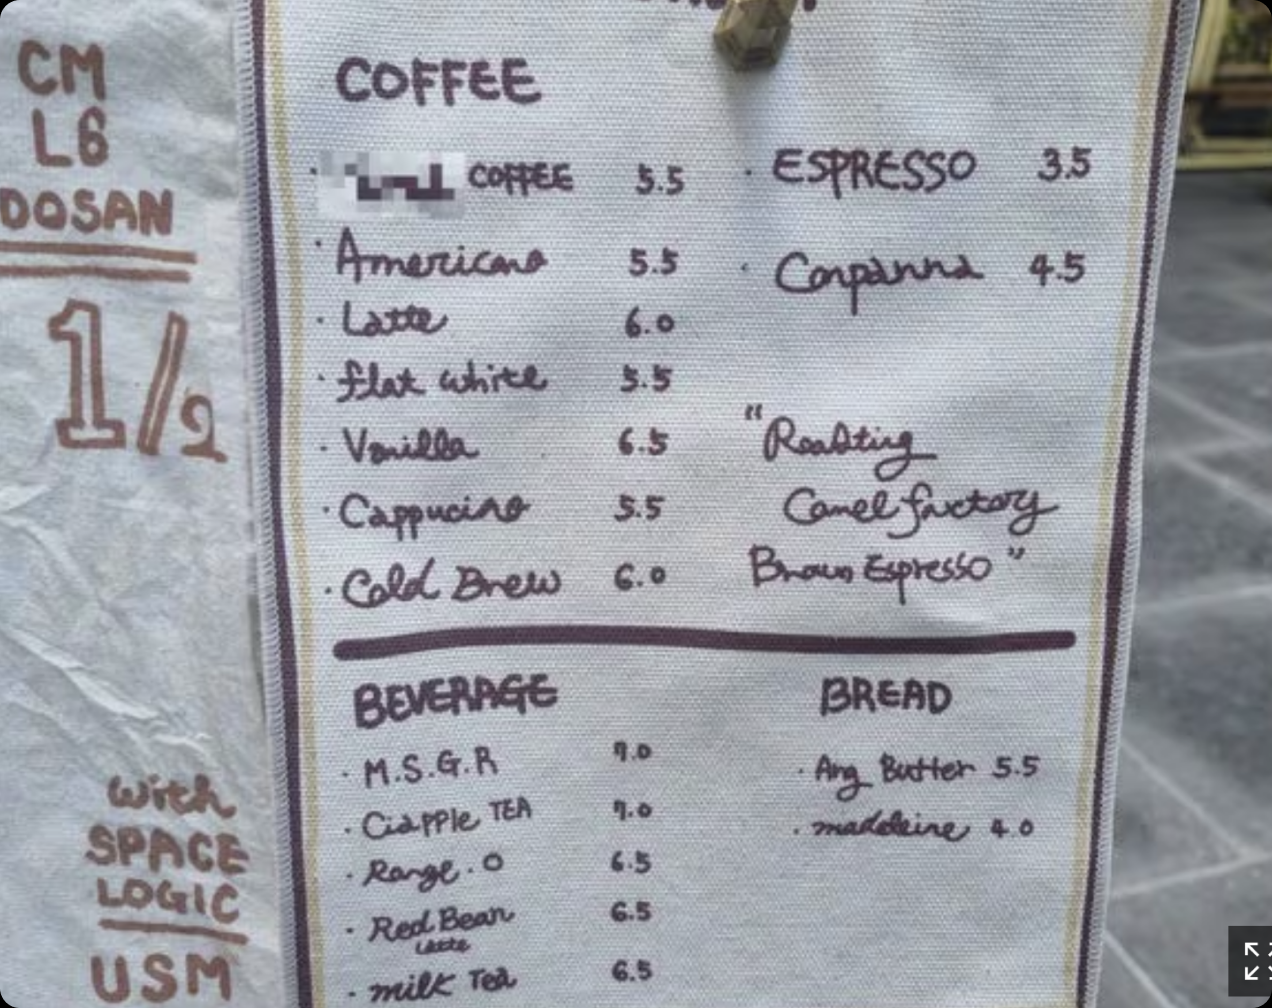 CM
L6
DOSAN
1/2
with
SPACE
LOGIC
USM
COFFEE
· COFFEE 5.5
· Americano 5.5
· Latte 6.0
· flat white 5.5
· Vanilla 6.5
· Cappucino 5.5
· Cold Brew 6.0
· ESPRESSO 3.5
· Conpanna 4.5
"Roasting
Camel factory
Brown Espresso"
BEVERAGE
· M.S.G.R 7.0
· Ciapple TEA 7.0
· Range.O 6.5
· Red Bean
Latte 6.5
· milk Tea 6.5
BREAD
· Ang Butter 5.5
· madeleine 4.0